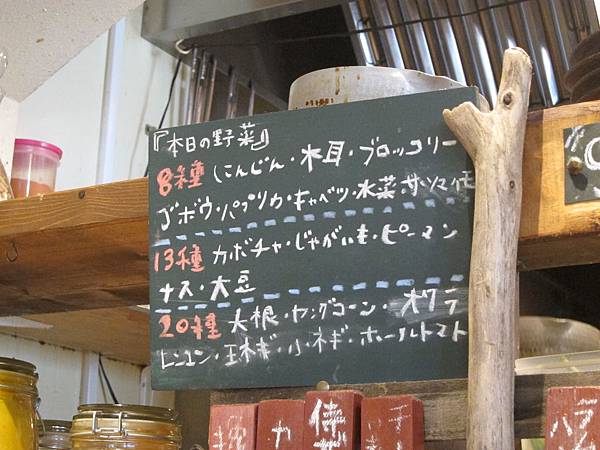 『本日の野菜』
8種 にんじん・木耳・ブロッコリー
ゴボウ・パプリカ・キャベツ・水菜 サツマイモ
13種 カボチャ・じゃがいも・ピーマン
ナス・大豆
20種 大根・ヤングコーン・オクラ
レンコン・玉ネギ・小ネギ・ホールトマト